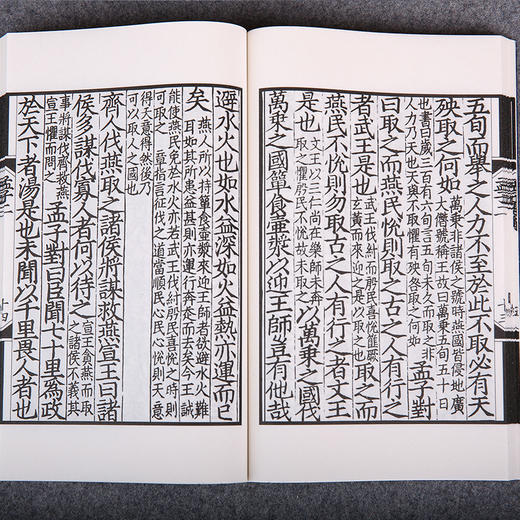 五旬而舉之人力不至於此不取必有天
殃取之何如
萬乘非諸侯之號時燕國皆侵地廣
大僭號稱王故曰萬乘五旬五十日
也書曰歲三百有六旬言五旬未久而取之非
人力乃天也天與不取懼有殃咎取之何如
孟子對
曰取之而燕民悅則取之古之人有行之
者武王是也
武王伐紂而殷民喜悅篚厥
玄黃而來迎之是以取之也
取之而
燕民不悅則勿取古之人有行之者文王
是也
文王以三仁尚在樂師未奔
取之懼殷民不悅故未取之
以萬乘之國伐
萬乘之國簞食壺漿以迎王師豈有他哉
避水火也如水益深如火益熱亦運而已
矣
燕人所以持簞食壺漿來迎王師者欲避水火難
耳如其所患益甚則亦運行奔走而去矣今王誠
能使燕民免於水火亦若武王伐紂殷民喜悅之時則
可取之 章指言征伐之道當順民心民心悅則天意
得天意得然後乃
可以取人之國也
齊人伐燕取之諸侯將謀救燕宣王曰諸
侯多謀伐寡人者何以待之
宣王貪燕而取
之諸侯不義其
事將謀伐齊救燕
宣王懼而問之
孟子對曰臣聞七十里為政
於天下者湯是也未聞以千里畏人者也
十四